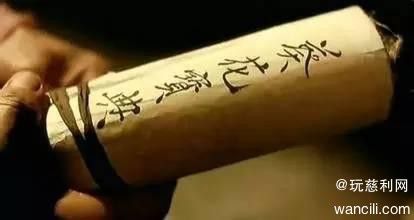 葵花寶典
@玩慈利网
wancili.com